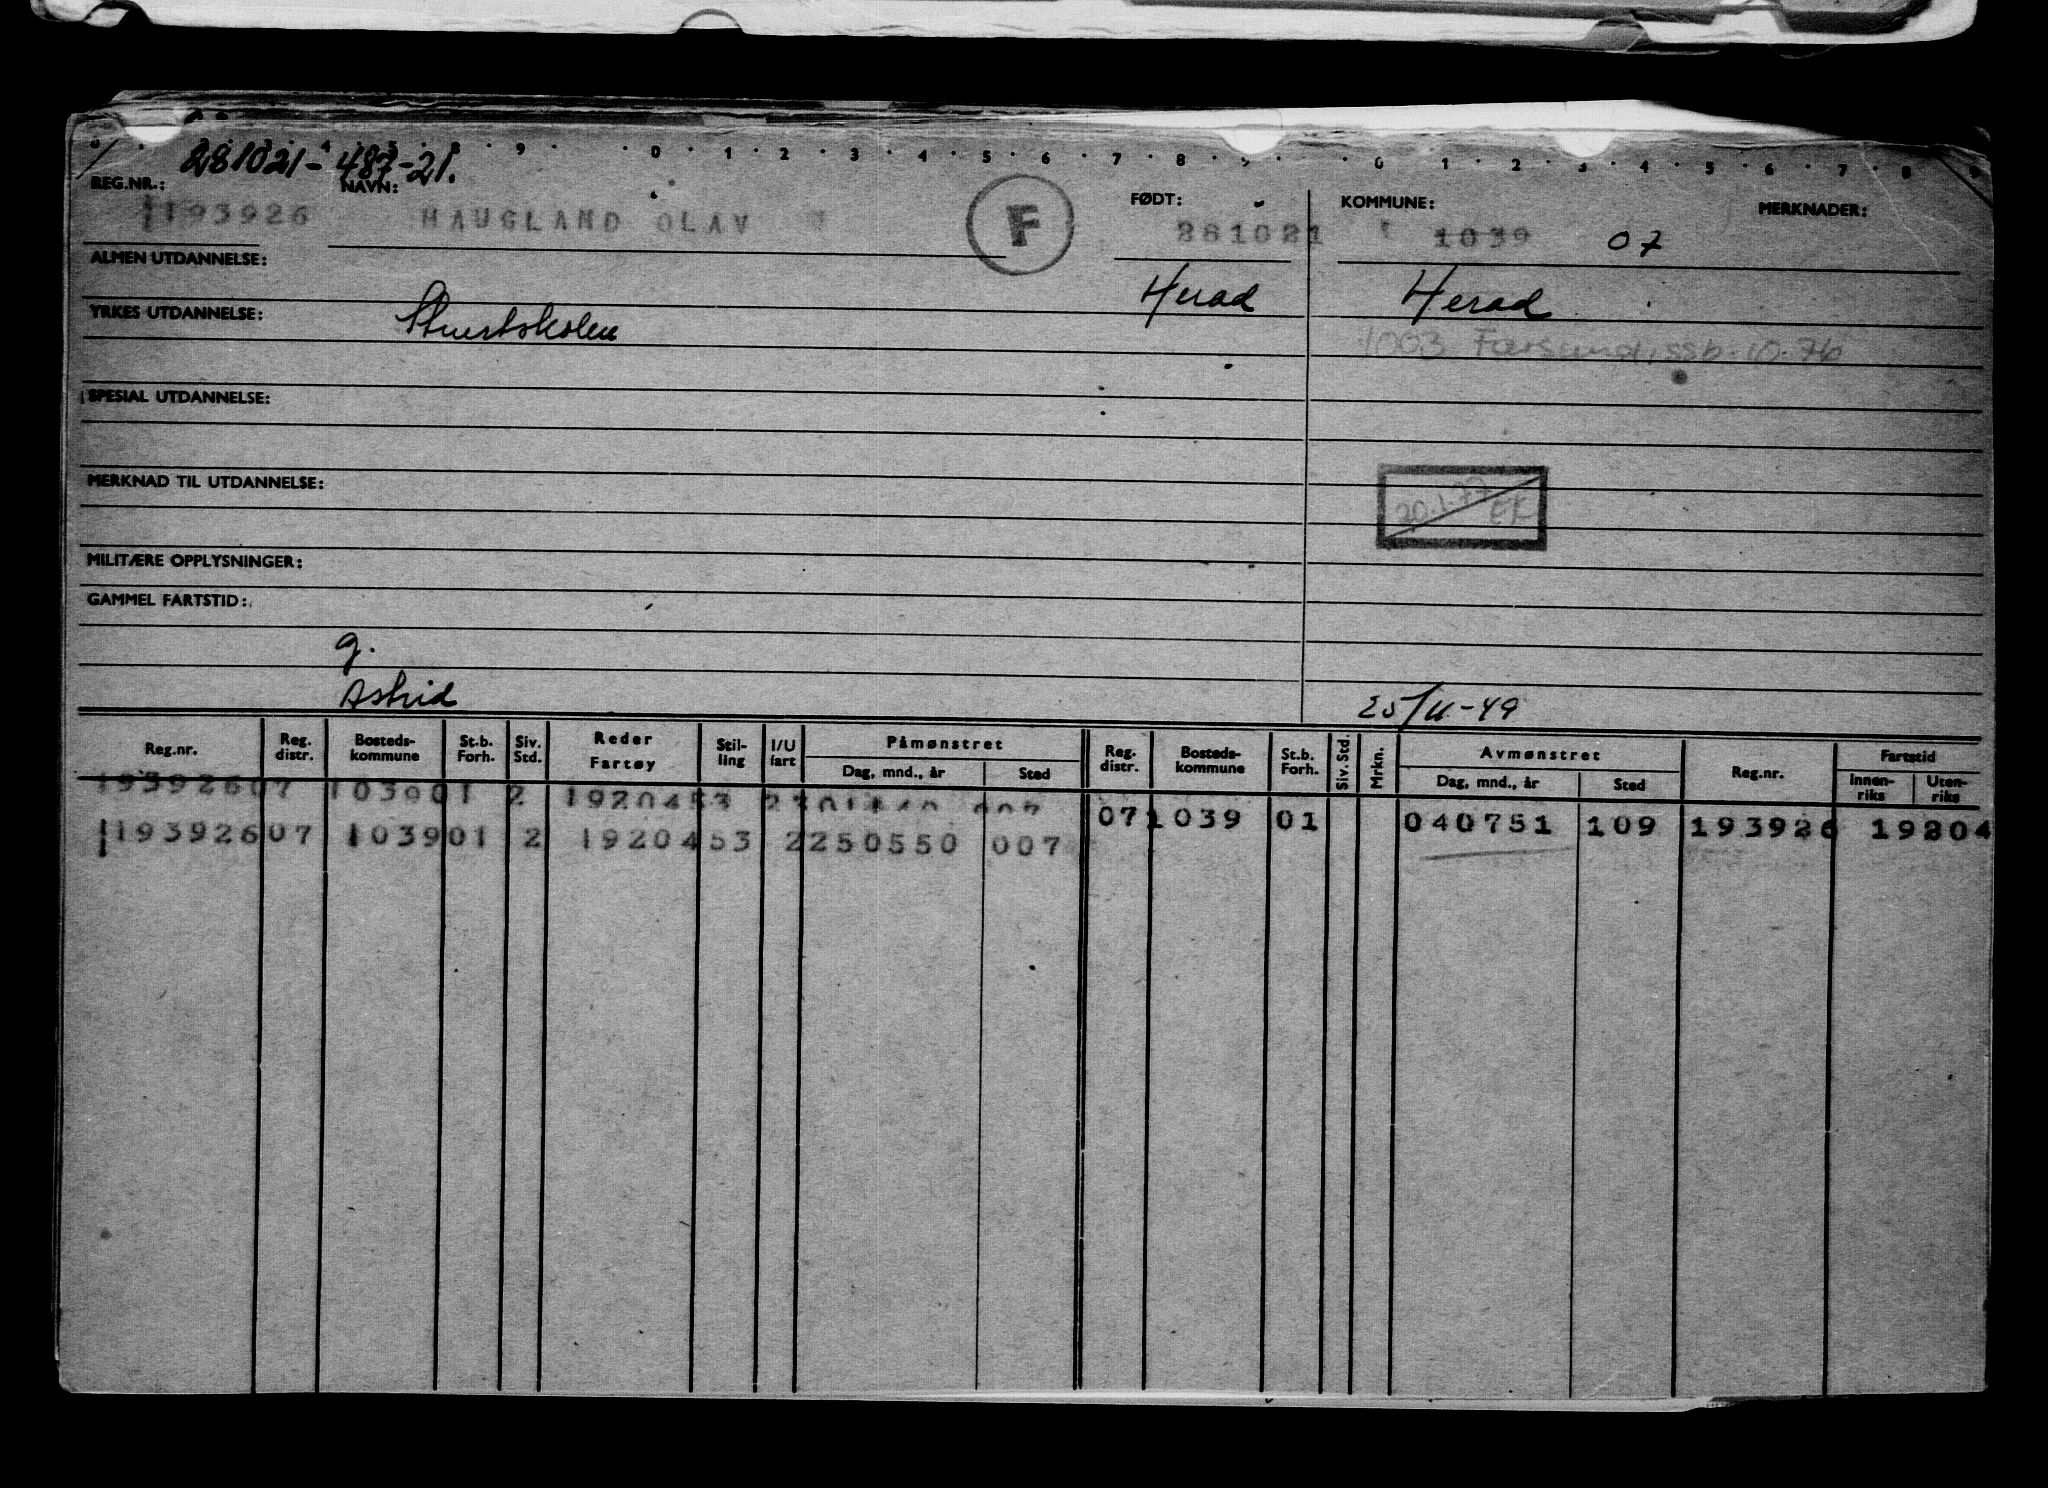 281021-487-21.
REG.NR.: NAVN: FØDT: KOMMUNE: MERKNADER:
193926 HAUGLAND OLAV F 281021 1039 07
ALMEN UTDANNELSE: Herad Herad
YRKES UTDANNELSE: Stuertskolen
1003 Farsund, ssb. 10.76
SPESIAL UTDANNELSE:
MERKNAD TIL UTDANNELSE:
20.1.77 EK
MILITÆRE OPPLYSNINGER:
GAMMEL FARTSTID:
g.
Astrid 25/11-49
Reg.nr. Reg. distr. Bosteds-kommune St.b. Forh. Siv. Std. Reder Fartøy Stil-ling I/U fart Påmønstret Dag, mnd., år Sted Reg. distr. Bosteds-kommune St.b. Forh. Siv. Std. Mrkn. Avmønstret Dag, mnd., år Sted Reg.nr. Fartstid Innen-riks Uten-riks
193926 07 1039 01 2 19204 53 2 007
07 1039 01 040751 109 193926 19204
193926 07 1039 01 2 19204 53 2 250550 007